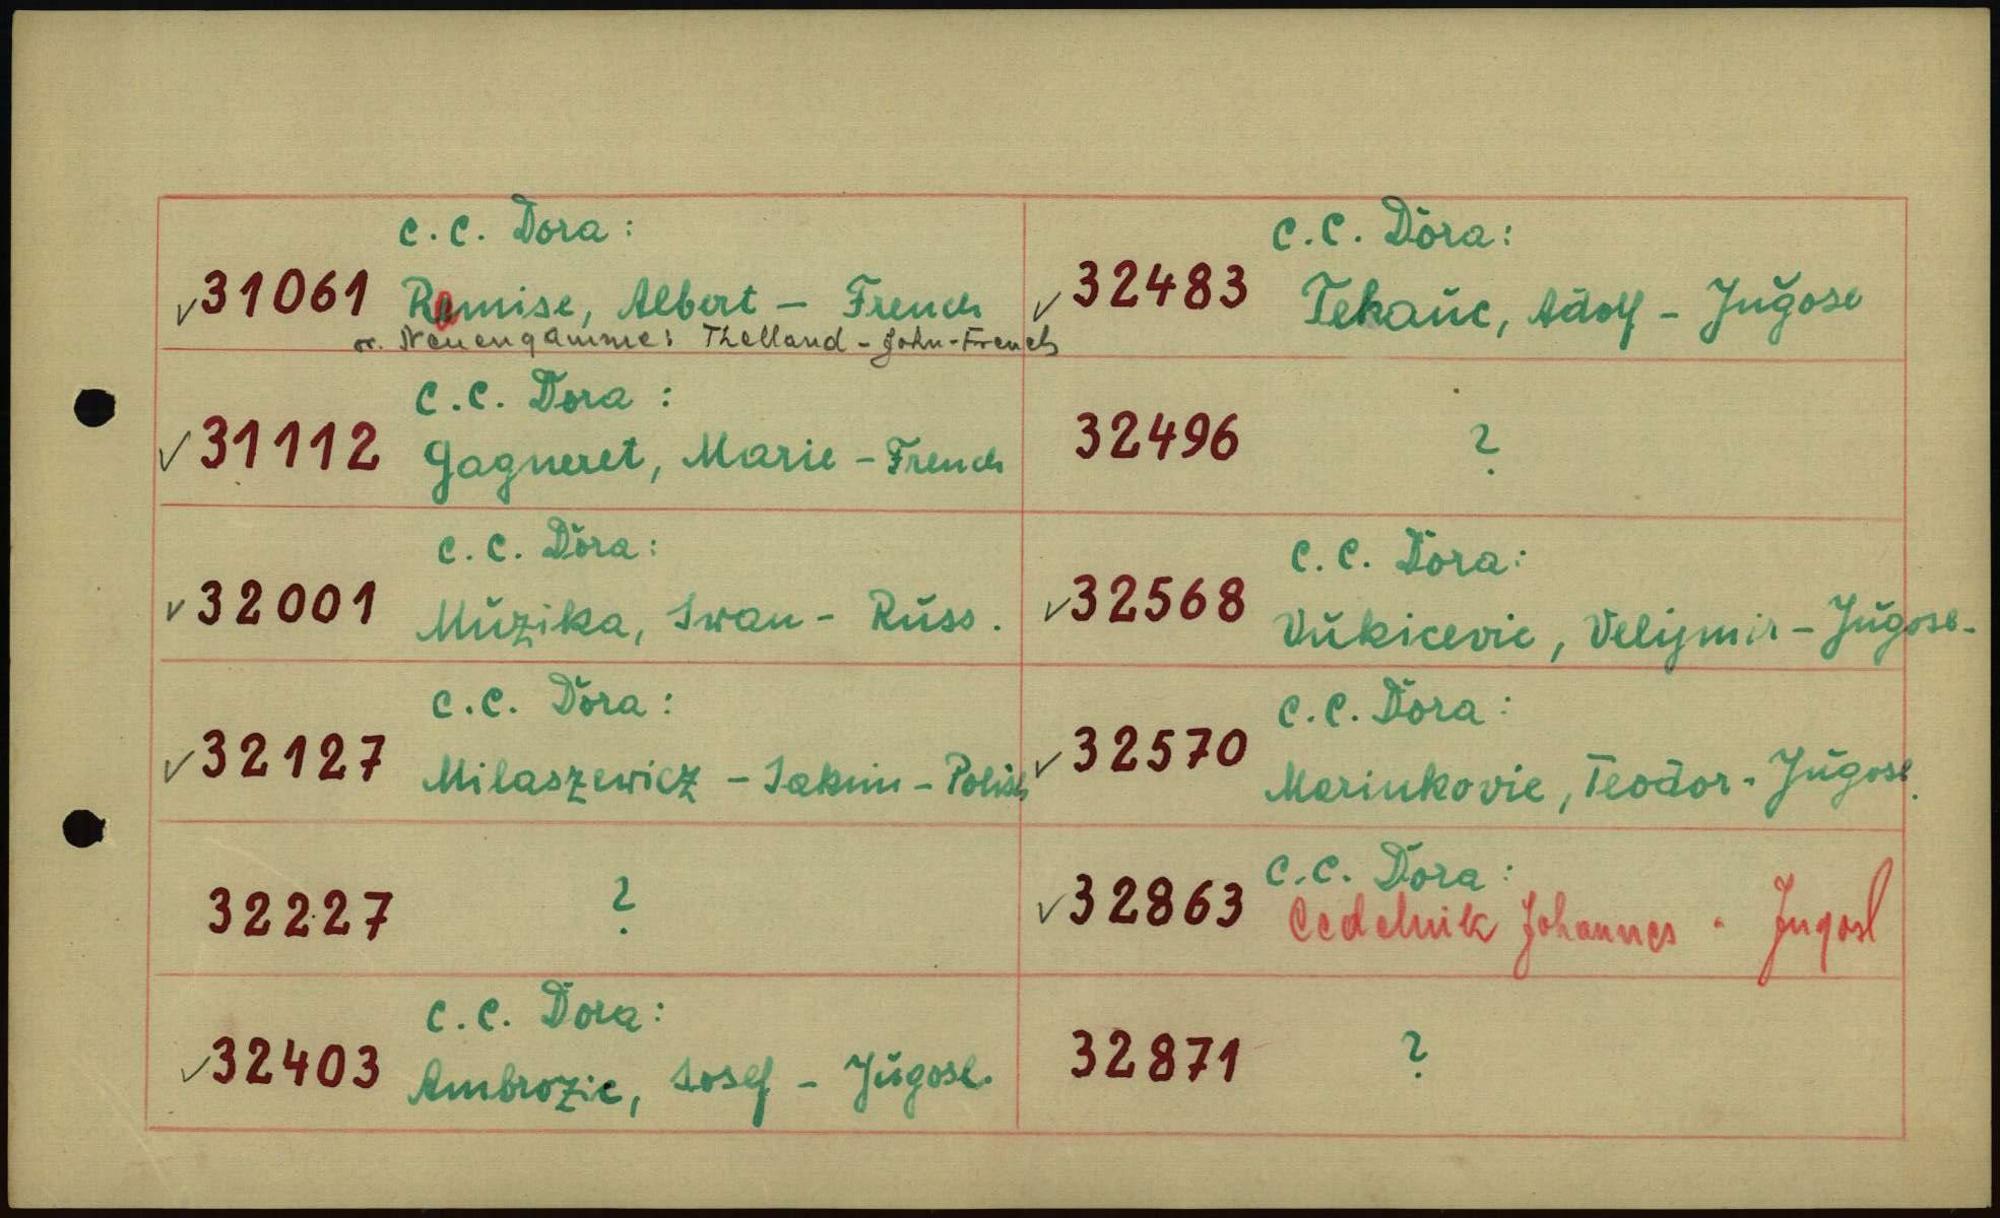 c.c. Dora:
✓31061 Remise, Albert – French
or. Neuengamme: Thelland - John-French
c.c. Dora:
✓31112 Gagneret, Marie - French
c.c. Dora:
✓32001 Muzika, Iwan - Russ.
c.c. Dora:
✓32127 Milaszewicz - Iakim - Polish
32227 ?
c.c. Dora:
✓32403 Ambrozic, Iosef - Jugosl.
c.c. Dora:
✓32483 Tekauc, Adolf - Jugosl
32496 ?
c.c. Dora:
✓32568 Vukicevic, Velijmir - Jugosl.
c.c. Dora:
✓32570 Marinkovic, Teodor - Jugosl.
c.c. Dora:
✓32863 Cedelnik Johannes - Jugosl
32871 ?